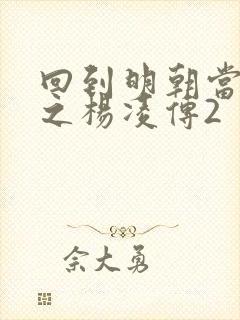 回到明朝當
之楊凌傳2
佘大勇